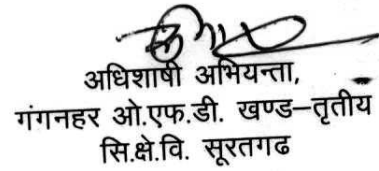 अधिशाषी अभियन्ता,
गंगनहर ओ.एफ.डी. खण्ड–तृतीय
सि.क्षे.वि. सूरतगढ